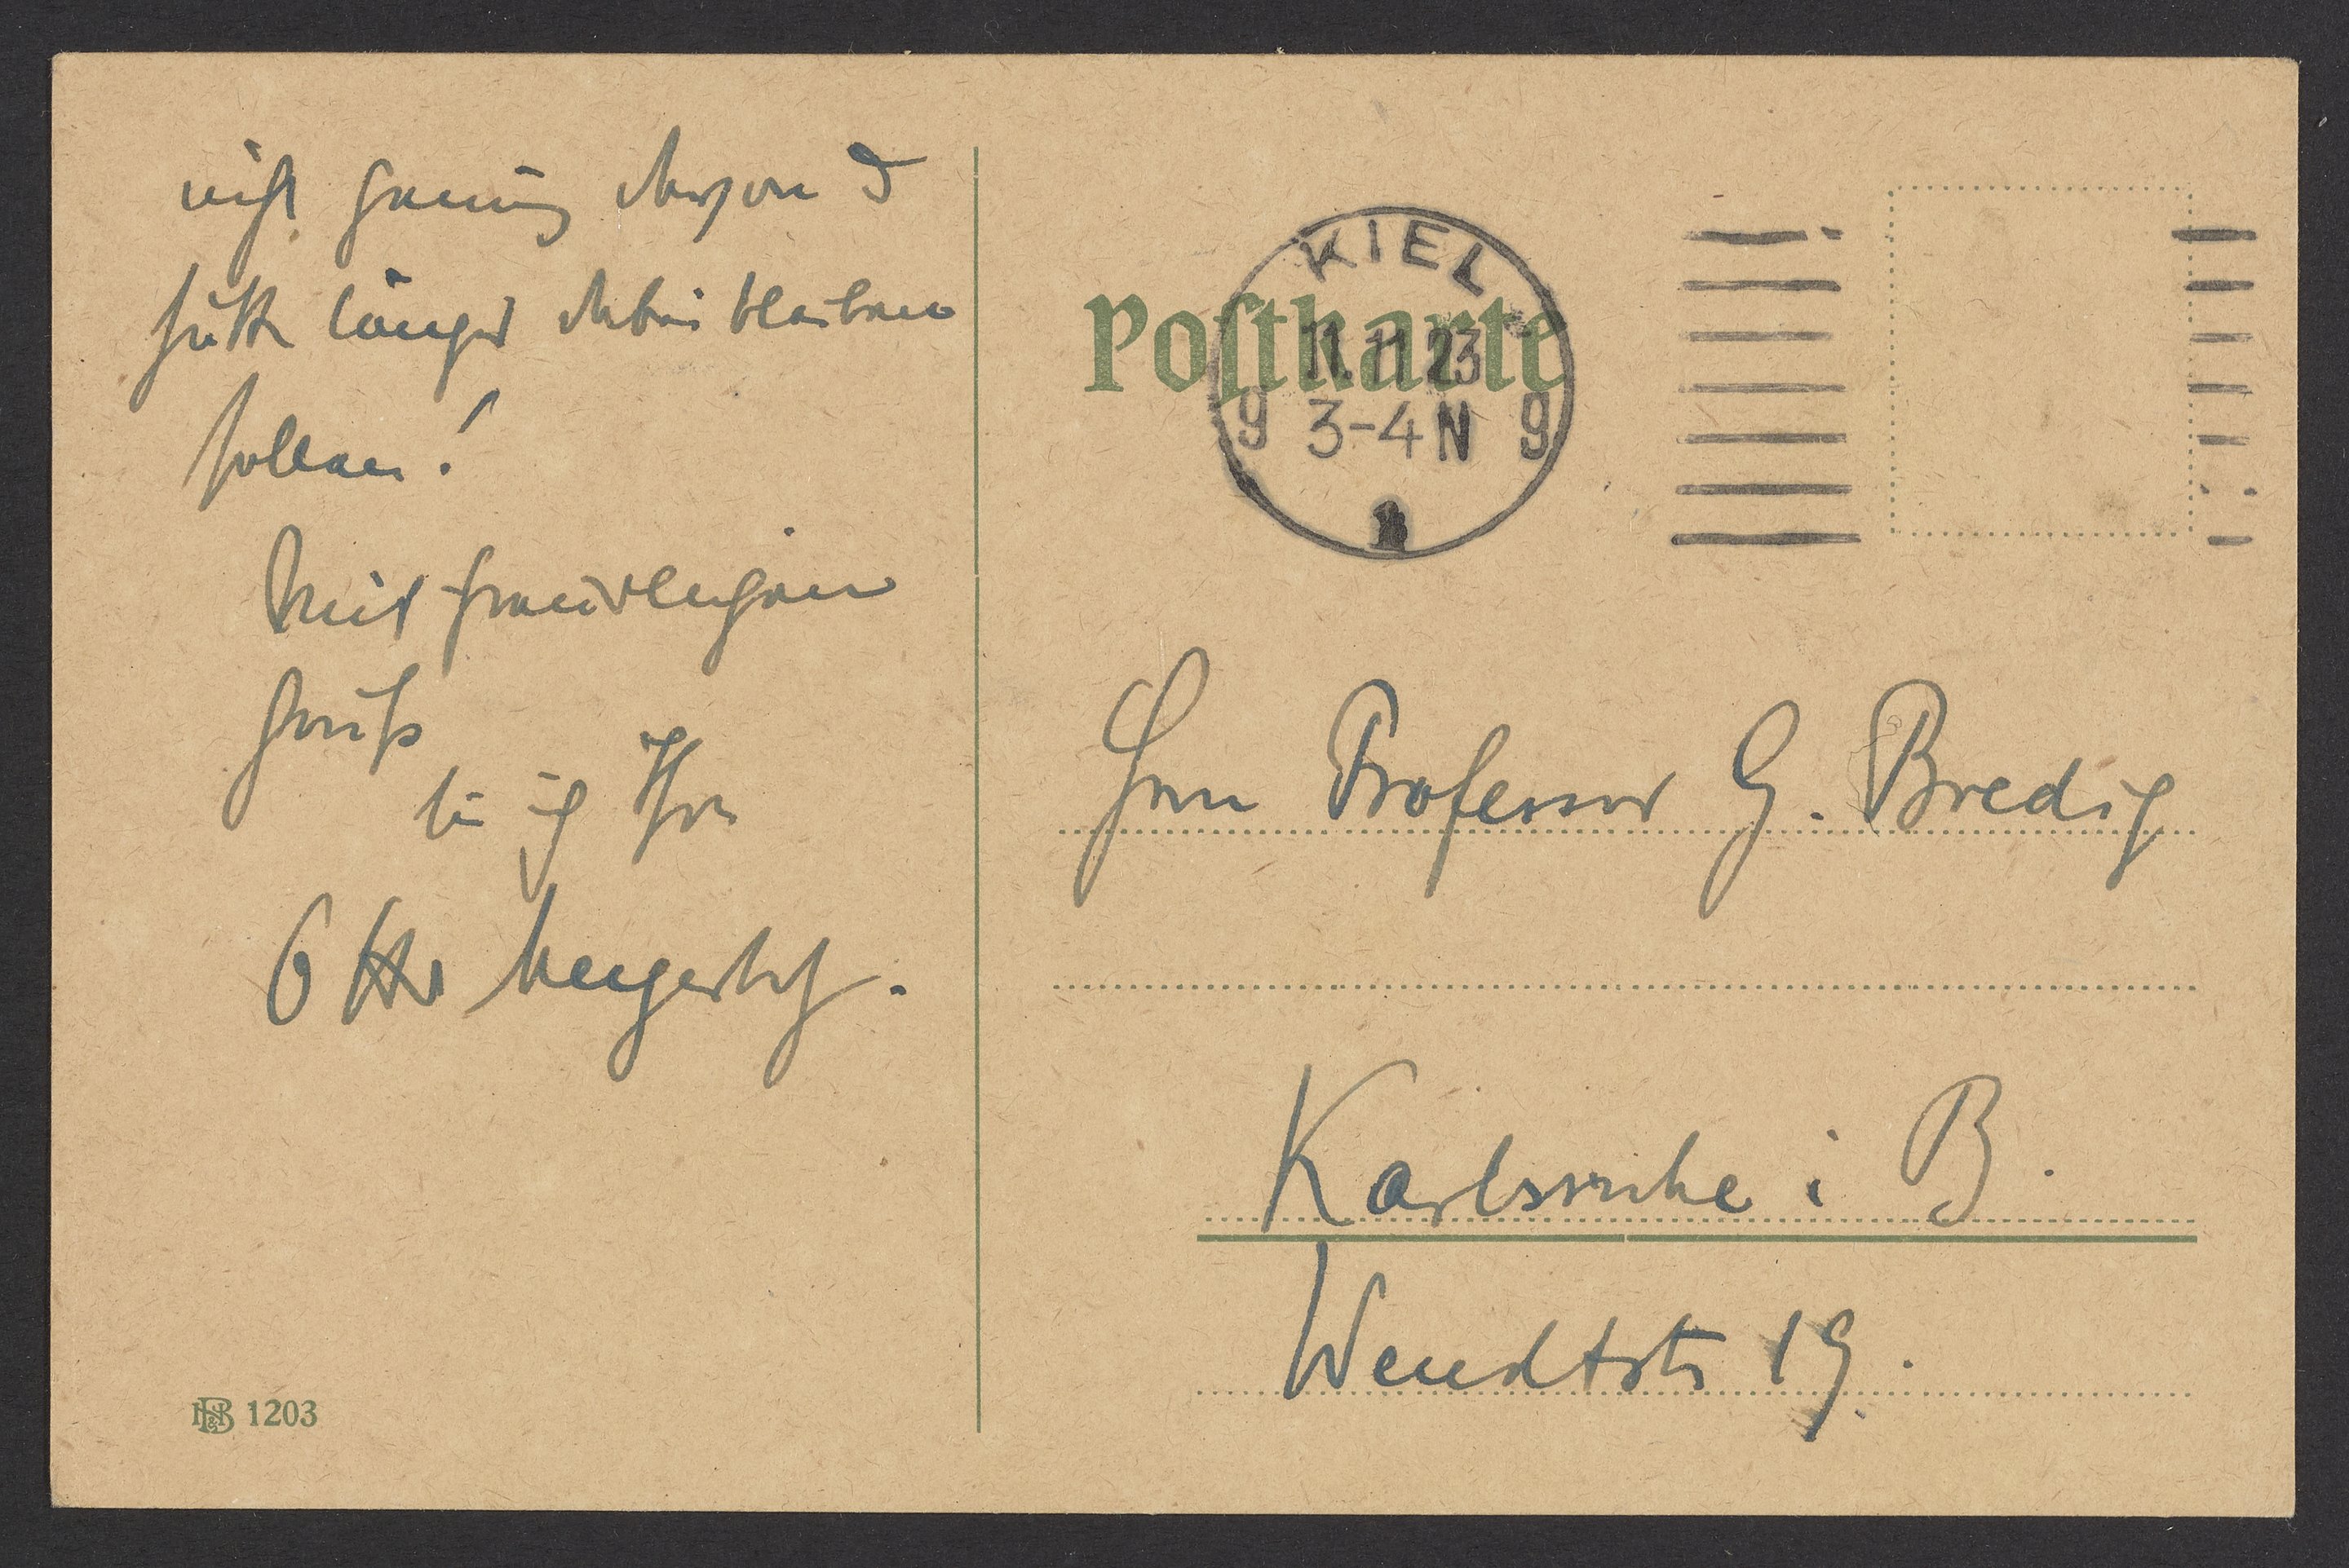 nicht genug davon &
hätte länger dabei bleiben
sollen!
Mit freundlichem
Gruß
bin ich Ihr
Otto Meyerhof.
HB&R 1203
Postkarte
KIEL
11.11.23
9 3-4 N 9
Herrn Professor G. Bredig
Karlsruhe i B.
Wendtstr 19.